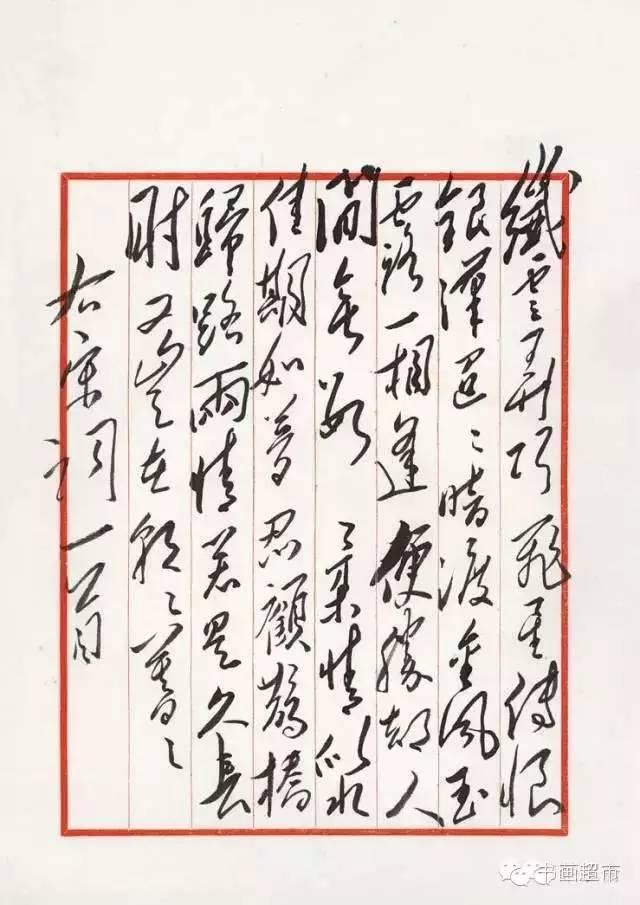 纖雲弄巧飛星傳恨
銀漢迢〻暗渡金風玉
露一相逢便勝却人
間無數 柔情似水
佳期如夢忍顧鵲橋
歸路兩情若是久長
時又豈在朝〻暮〻
右宋詞一首
书画超市